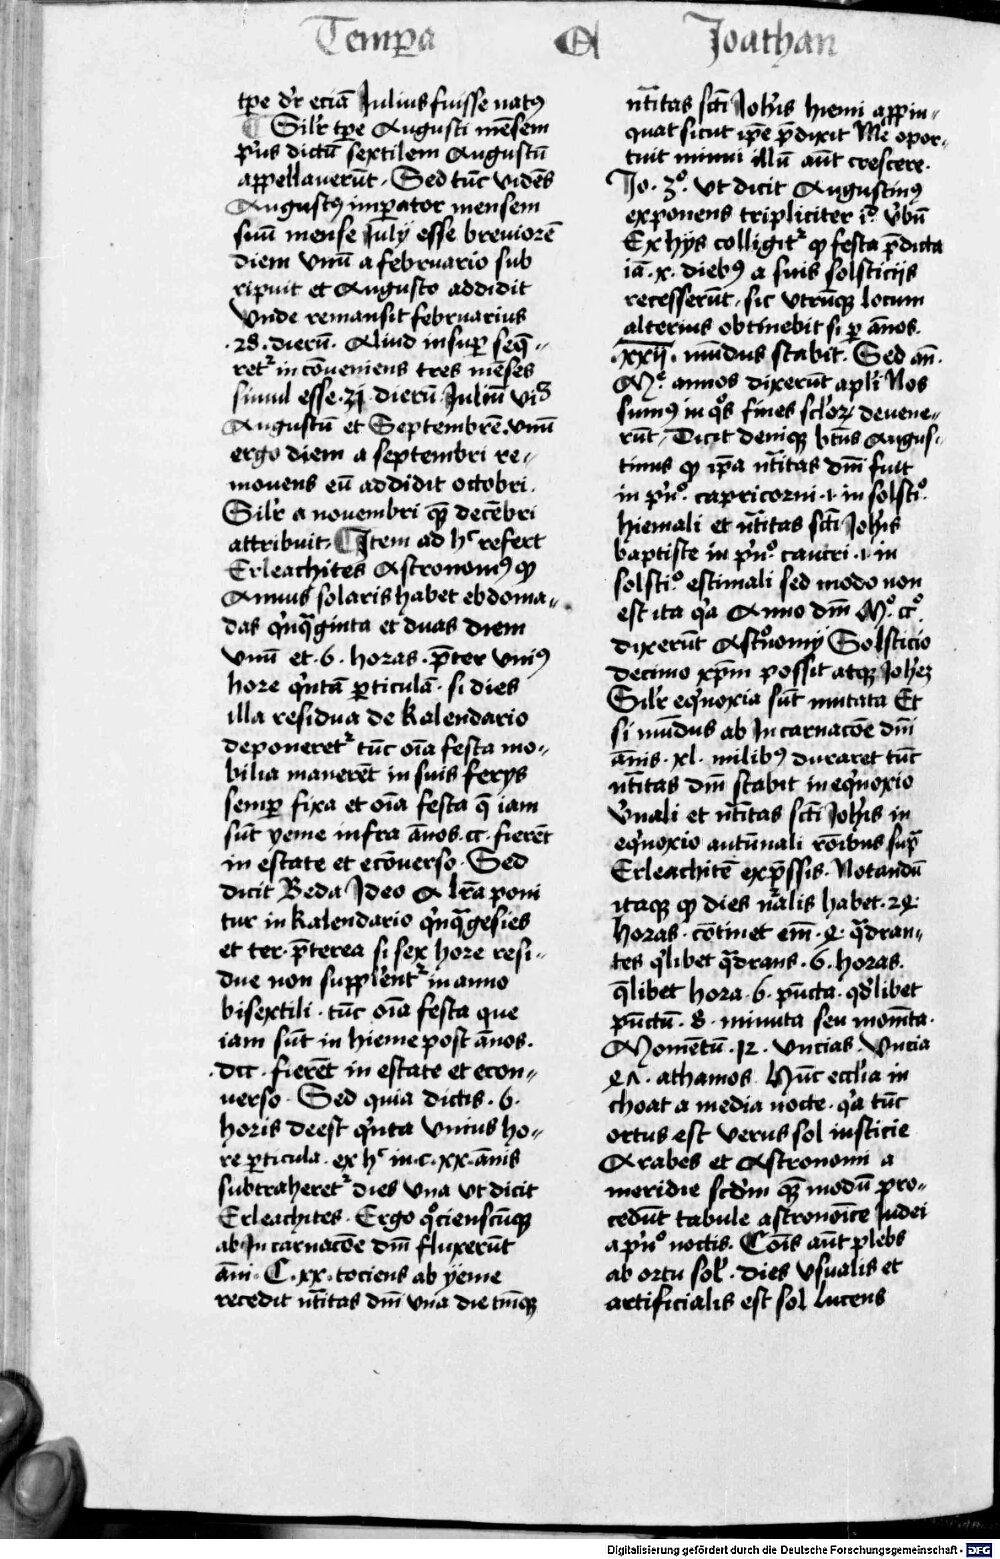 Tempa A Joathan
tpe dr eciā Julius fuisse natꝰ
Silr tpe Augusti mēsem
pʼus dictū sextilem Augustū
appellauerūt. Sed tūc vidēs
Augustꝰ imꝑator mensem
suū mense Julij esse breuiorē
diem vnū a februario sub
ripuit et Augusto addidit
vnde remansit februarius
.28. dierū. Aliud insuꝑ seq̄
retᷣ in cōueniens tres mēses
simul esse .31. dierū Juliū vꝫ
Augustū et Septembrē. vnū
ergo diem a septembri re-
mouens eū addidit octobri.
Silr a nouembri qꝫ decēbri
attribuit. Item ad hᶜ refert
Erleachites Astronomꝰ ꝙ
Annus solaris habet ebdoma-
das qʼnqᵃginta et duas diem
vnū et .6. horas. p̄ter vniꝰ
hore qʼntā ꝑticulā. si dies
illa residua de kalendario
deponeretᷣ tūc oīa festa mo-
bilia manerēt in suis ferys
semꝑ fixa et oīa festa q̄ iam
sūt yeme infra ānos .cc. fierēt
in estate et ecōuerso. Sed
dicit Beda Ideo A lrā poni
tur in kalendario qʼnqᵃgesies
et ter. p̄terea si sex hore resi-
due non supplerentᷣ in anno
bisextili. tūc oīa festa que
iam sūt in hieme post ānos.
.dcc. fierēt in estate et econ-
uerso. Sed quia dictis .6.
horis deest qʼnta vnius ho-
re ꝑticula. ex hᶜ in .c.xx. ānis
subtraheretᷣ dies vna vt dicit
Erleachites. Ergo qᵒcienscūqꝫ
ab Incarnacōe dm̄ fluxerūt
āni .C.xx. tociens ab yeme
recedit nt̄itas dm̄ vna die tm̄qꝫ
nt̄itas scti Johʼis hiemi appin-
quat sicut ipē p̄dixit Me opor-
tuit minui illū aūt crescere.
Jo. 3ᵒ. vt dicit Augustinꝰ
exponens tripliciter iᵈ vʼbū
Ex hijs colligitᷣ ꝙ festa p̄dicta
iā .x. diebꝰ a suis solsticijs
recesserūt. sic vtrūqꝫ locum
alterius obtinebit si ꝑ ānos.
.xxij. mūdus stabit. Sed an̄.
Mᵉ. annos dixerūt apli Nos
sumꝰ in qᵒs fines sclʼoꝝ deuene-
rūt. Dicit deniqꝫ btūs Augus-
tinus ꝙ ipā nt̄itas dm̄ fuit
in pʼnᵒ. capricorni .i. in solstiᵒ.
hiemali et nt̄itas scti Johʼis
baptiste in pʼnᵒ. cancri .i. in
solstiᵒ. estimali sed modo non
est ita qʼa Anno dm̄ Mᵒ. ccᵒ.
dixerūt Astᵒnomy Solsticio
decimo xp̄m possit atqꝫ Johʼeꝫ
Silr eqʼnoxia sūt mutata Et
si mūdus ab Incarnacōe dm̄
ānis .xl. milibꝰ duraret tūc
nt̄itas dm̄ stabit in eqʼnoxio
vʼnali et nt̄itas scti Johʼis in
eqʼnoxio autūnali rōibus supᵃ
Erleachitē exp̄ssis. Notandū
itaqꝫ ꝙ dies nᵃalis habet .24.
horas. cōtinet em̄ .4. qᵃdran-
tes qʼlibet qᵃdrans .6. horas.
q̄libet hora .6. pūcta. qdʼlibet
pūctū .8. minuta seu momēta.
Momētū .12. vncias. Vncia
47. athamos. Hūc ecclʼia in
choat a media nocte. qʼa tūc
ortus est verus sol iusticie
Arabes et Astronomi a
meridie scdʼm quē modū pro-
cedūt tabule astronoīce Judei
a pʼnᵒ noctis. Cōis aūt plebs
ab ortu solʼ. dies vsualis et
artificialis est sol lucens
Digitalisierung gefördert durch die Deutsche Forschungsgemeinschaft - DFG